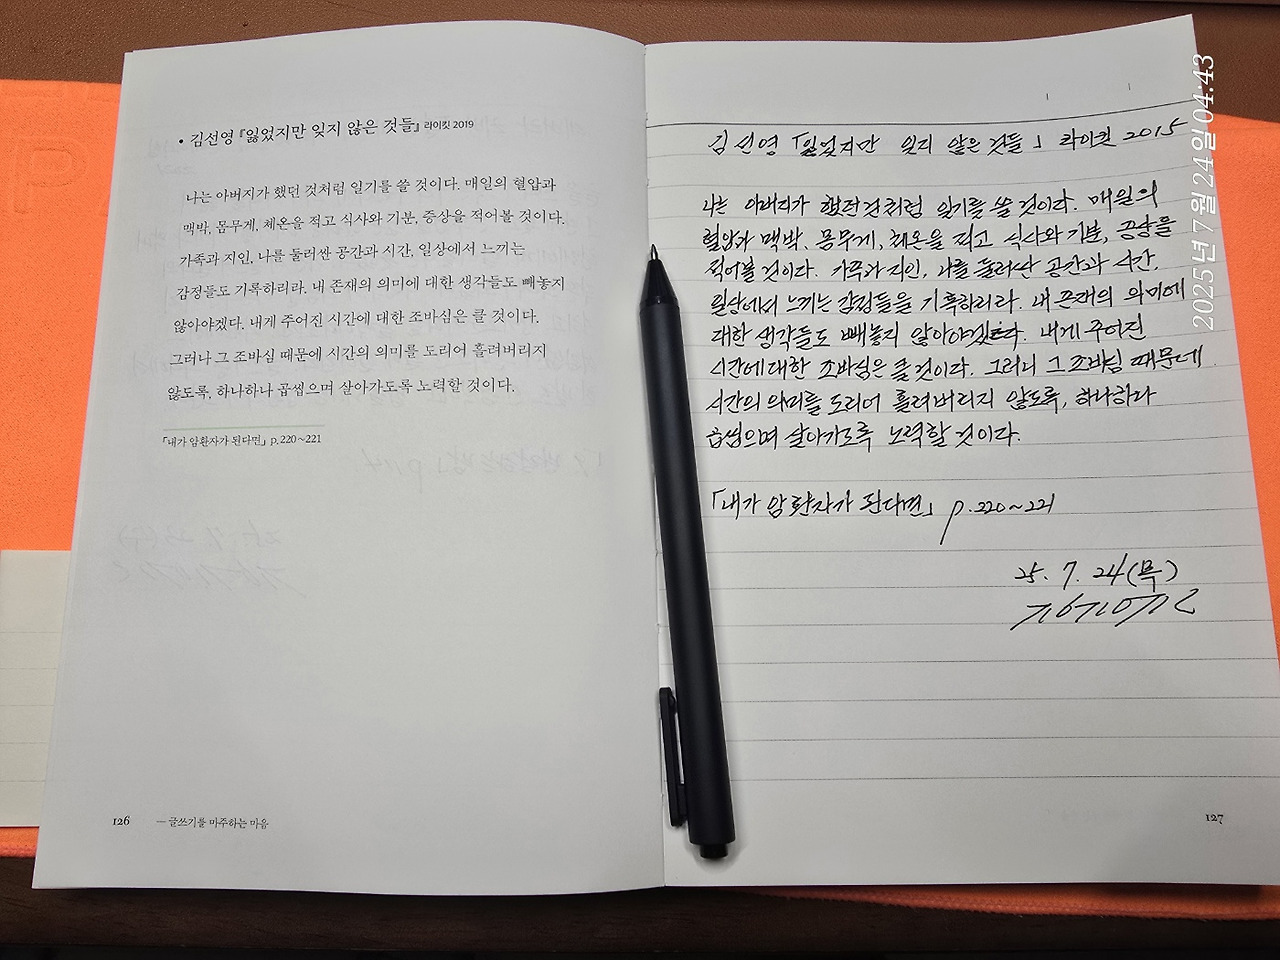 • 김선영 『잃었지만 잊지 않은 것들』 라이킷 2019
나는 아버지가 했던 것처럼 일기를 쓸 것이다. 매일의 혈압과
맥박, 몸무게, 체온을 적고 식사와 기분, 증상을 적어볼 것이다.
가족과 지인, 나를 둘러싼 공간과 시간, 일상에서 느끼는
감정들도 기록하리라. 내 존재의 의미에 대한 생각들도 빼놓지
않아야겠다. 내게 주어진 시간에 대한 조바심은 클 것이다.
그러나 그 조바심 때문에 시간의 의미를 도리어 흘려버리지
않도록, 하나하나 곱씹으며 살아가도록 노력할 것이다.
「내가 암환자가 된다면」 p.220~221
126 — 글쓰기를 마주하는 마음
김선영 「잃었지만 잊지 않은 것들」 라이킷 2015
나는 아버지가 했던것처럼 일기를 쓸 것이다. 매일의
혈압과 맥박, 몸무게, 체온을 적고 식사와 기분, 증상을
적어볼 것이다. 가족과 지인, 나를 둘러싼 공간과 시간,
일상에서 느끼는 감정들을 기록하리라. 내 존재의 의미에
대한 생각들도 빼놓지 않아야겠다. 내게 주어진
시간에 대한 조바심은 클 것이다. 그러나 그 조바심 때문에
시간의 의미를 도리어 흘려버리지 않도록, 하나하나
곱씹으며 살아가도록 노력할 것이다.
「내가 암환자가 된다면」 p.220~221
25. 7. 24(목)
127
2025년 7월 24일 04:43